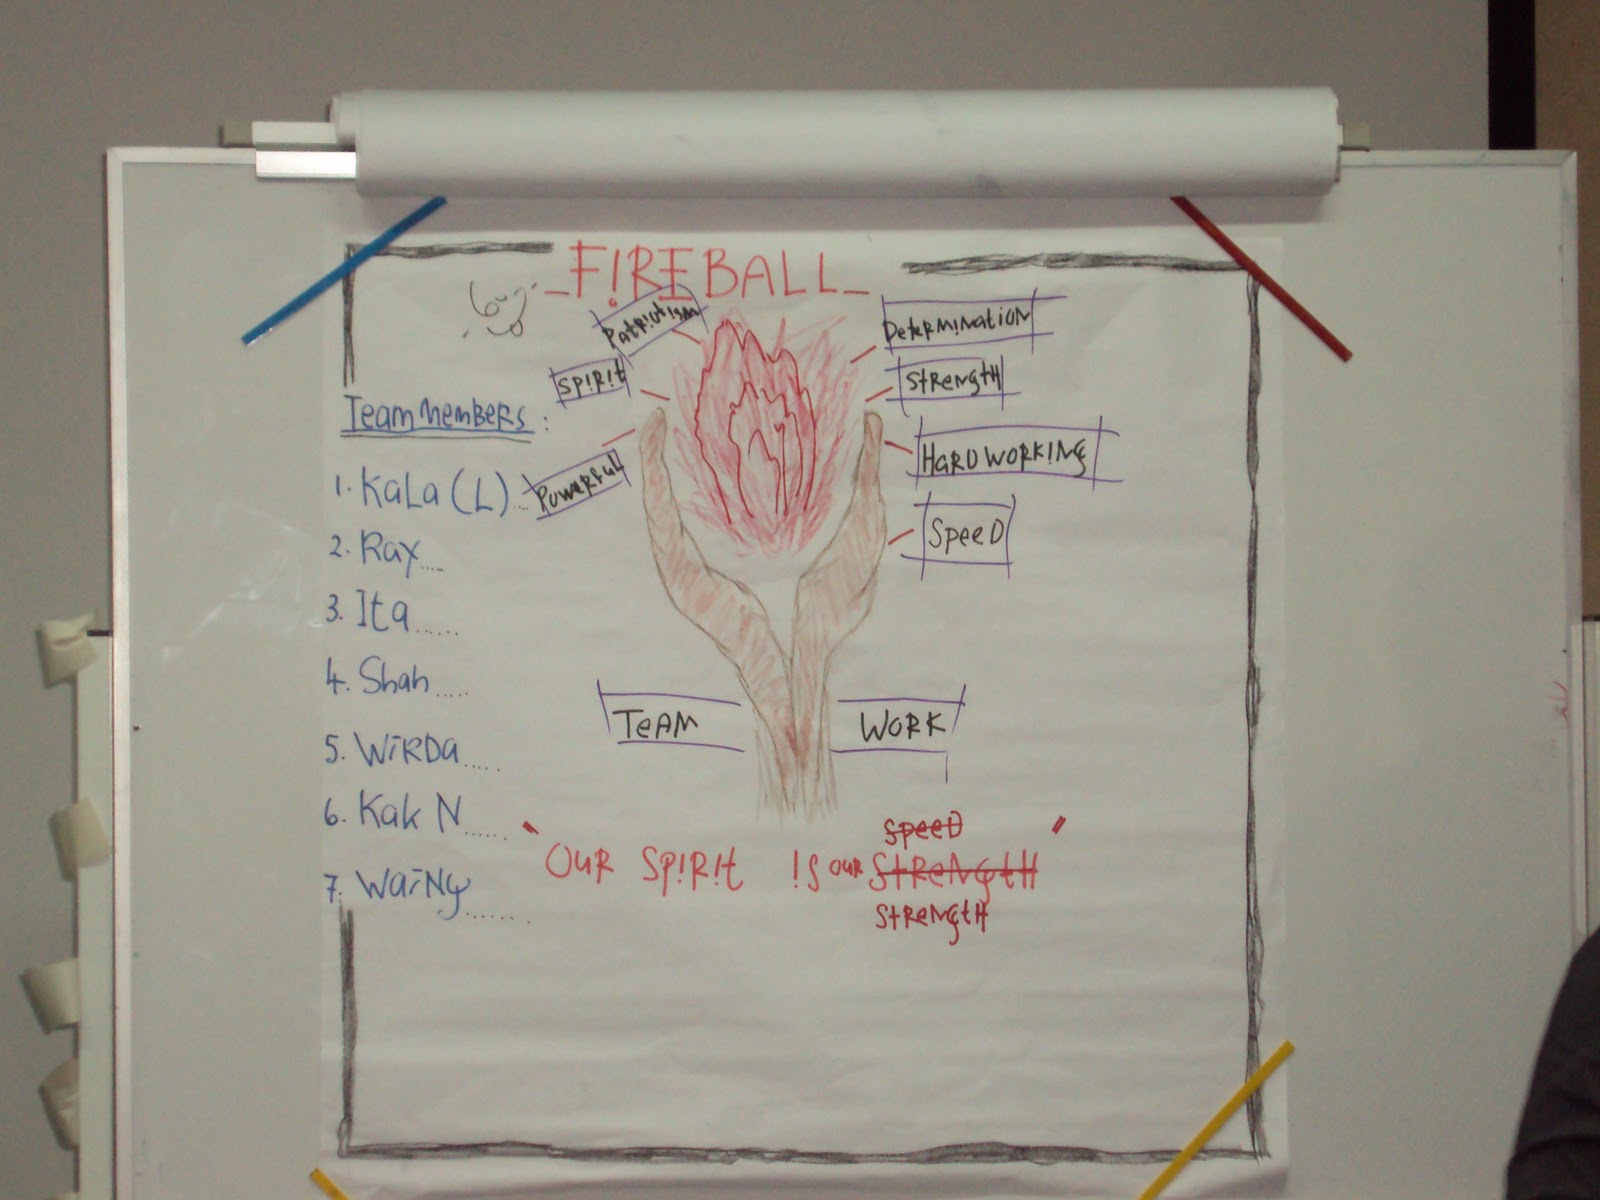 F!REBALL
Patr!ot!sm
Sp!R!t
Powerful
Determ!nat!on
Strength
HardWork!ng
SpeeD
Team Members :
1. KaLa (L)...
2. Ray...
3. Ita......
4. Shah.....
5. WiRDa.....
6. Kak N......
7. WaiNg.......
TeAM WORK
"OUR SP!R!t !S OUR StReNgtH"
SpeeD
StReNgtH